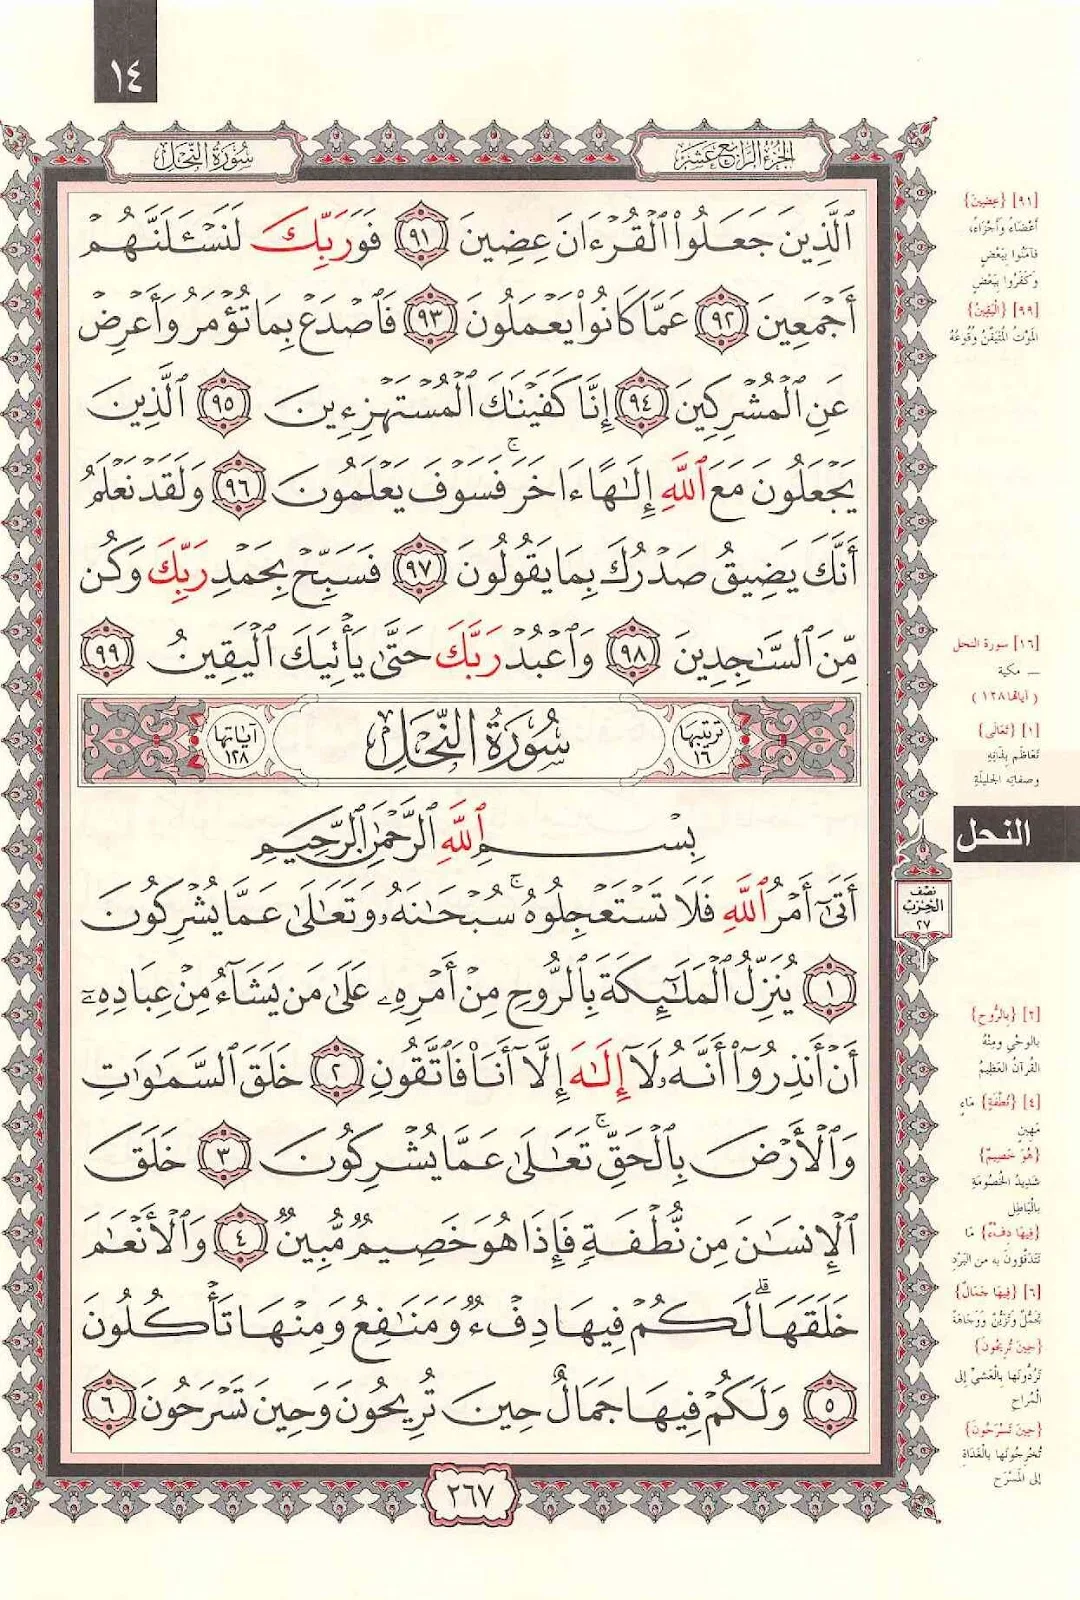 ١٤
الجزء الرابع عشر
سورة النحل
ٱلَّذِينَ جَعَلُوا۟ ٱلْقُرْءَانَ عِضِينَ ٩١ فَوَرَبِّكَ لَنَسْـَٔلَنَّهُمْ
أَجْمَعِينَ ٩٢ عَمَّا كَانُوا۟ يَعْمَلُونَ ٩٣ فَٱصْدَعْ بِمَا تُؤْمَرُ وَأَعْرِضْ
عَنِ ٱلْمُشْرِكِينَ ٩٤ إِنَّا كَفَيْنَٰكَ ٱلْمُسْتَهْزِءِينَ ٩٥ ٱلَّذِينَ
يَجْعَلُونَ مَعَ ٱللَّهِ إِلَٰهًا ءَاخَرَ ۚ فَسَوْفَ يَعْلَمُونَ ٩٦ وَلَقَدْ نَعْلَمُ
أَنَّكَ يَضِيقُ صَدْرُكَ بِمَا يَقُولُونَ ٩٧ فَسَبِّحْ بِحَمْدِ رَبِّكَ وَكُن
مِّنَ ٱلسَّٰجِدِينَ ٩٨ وَٱعْبُدْ رَبَّكَ حَتَّىٰ يَأْتِيَكَ ٱلْيَقِينُ ٩٩
ترتيبها ١٦ سُورَةُ النَّحْلِ آياتها ١٢٨
بِسْمِ ٱللَّهِ ٱلرَّحْمَٰنِ ٱلرَّحِيمِ
أَتَىٰٓ أَمْرُ ٱللَّهِ فَلَا تَسْتَعْجِلُوهُ ۚ سُبْحَٰنَهُۥ وَتَعَٰلَىٰ عَمَّا يُشْرِكُونَ
١ يُنَزِّلُ ٱلْمَلَٰٓئِكَةَ بِٱلرُّوحِ مِنْ أَمْرِهِۦ عَلَىٰ مَن يَشَآءُ مِنْ عِبَادِهِۦٓ
أَنْ أَنذِرُوٓا۟ أَنَّهُۥ لَآ إِلَٰهَ إِلَّآ أَنَا۠ فَٱتَّقُونِ ٢ خَلَقَ ٱلسَّمَٰوَٰتِ
وَٱلْأَرْضَ بِٱلْحَقِّ ۚ تَعَٰلَىٰ عَمَّا يُشْرِكُونَ ٣ خَلَقَ
ٱلْإِنسَٰنَ مِن نُّطْفَةٍ فَإِذَا هُوَ خَصِيمٌ مُّبِينٌ ٤ وَٱلْأَنْعَٰمَ
خَلَقَهَا ۗ لَكُمْ فِيهَا دِفْءٌ وَمَنَٰفِعُ وَمِنْهَا تَأْكُلُونَ
٥ وَلَكُمْ فِيهَا جَمَالٌ حِينَ تُرِيحُونَ وَحِينَ تَسْرَحُونَ ٦
٢٦٧
[٩١] {عِضِينَ}
أَعْضَاءً وَأَجْزَاءً،
فَآمَنُوا بِبَعْضٍ
وَكَفَرُوا بِبَعْضٍ
[٩٩] {الْيَقِينُ}
المَوْتُ المُتَيَقَّنُ وُقُوعُهُ
[١٦] سورة النحل
– مكية
(آياتها ١٢٨)
[١] {تَعَالَى}
تَعَاظَمَ بِذَاتِهِ
وصفاتِه الجليلةِ
النحل
نصف
الحزب
٢٧
[٢] {بِالرُّوحِ}
بالوحْيِ ومِنْهُ
القُرآنُ العَظِيمُ
[٤] {نُطْفَةٍ} مَاءٍ
مَهِينٍ
{هُوَ خَصِيمٌ}
شَدِيدُ الخُصُومَةِ
بِالْبَاطِلِ
{فِيهَا دِفْءٌ} مَا
تَتَدَفَّؤُونَ به من البَرْدِ
[٦] {فِيهَا جَمَالٌ}
تَجَمُّلٌ وَتَزَيُّنٌ وَوَجَاهَةٌ
{حِينَ تُرِيحُونَ}
تَرُدُّونَها بِالْعَشِيِّ إلى
الْمُراحِ
{حِينَ تَسْرَحُونَ}
تُخْرِجُونَها بالْغَدَاةِ
إلى المَسْرَحِ